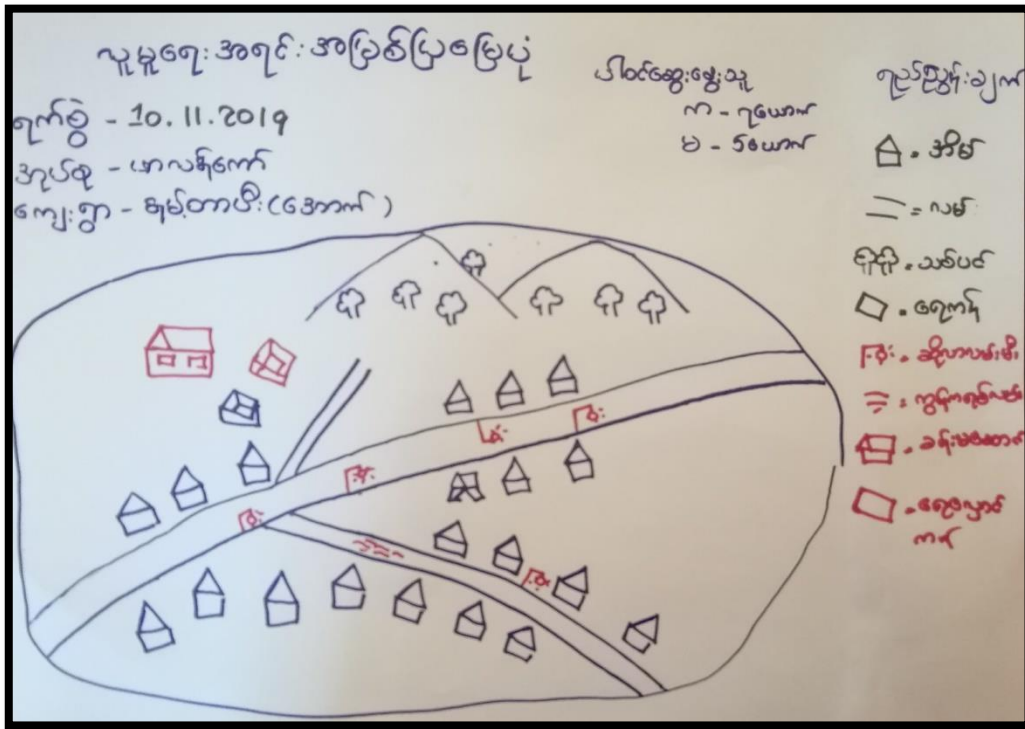 လူမှုရေးအရင်းအမြစ်ပြမြေပုံ
ရက်စွဲ - 10.11.2019
အုပ်စု - ဟာလန်ကော်
ကျေးရွာ - (အောက်)
ပါဝင်ဆွေးနွေးသူ
က - ၇ယောက်
မ - ၆ယောက်
ရည်ညွှန်းချက်
= အိမ်
= လမ်း
= သစ်ပင်
= ရေကန်
= ဆိုလာလမ်းမီး
= ကွန်ကရစ်လမ်း
= ခန်းမဆောင်
= ရေလှောင်
ကန်